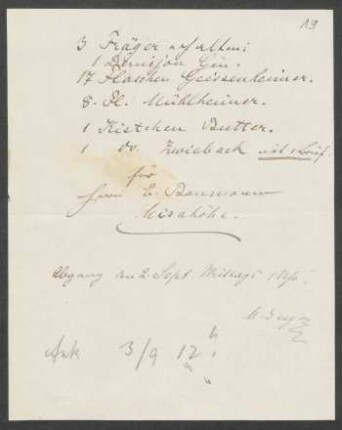 19
3 Träger erhalten:
1 Demijon Gin.
17 Flaschen Geisenheimer.
8. Fl. Mühlheimer.
1 Kistchen Butter.
1 do. Zwieback mit 1 Brief.
für
Herrn E. Baumann
Misahöhe.
Abgang den 2. Sept. Mittags
Ank 3/9 12 h